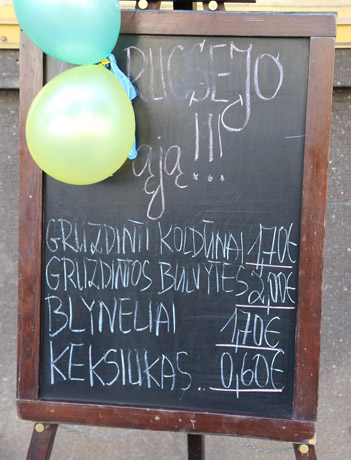 RUGSĖJO
ąją!!!
GRUZDINTI KOLDŪNAI 1,70€
GRUZDINTOS BULVYTĖS 2,00€
BLYNELIAI 1,70€
KEKSIUKAS.. 0,60€